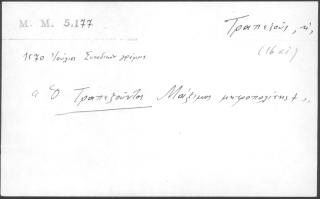 M. M. 5.177
Τραπεζοῦς, ἡ,
(16 αἰ)
1570 Ἰούλιος Συνοδικὸν γράμμα
ὁ Τραπεζοῦντος Μάξιμος μητροπολίτης +,.